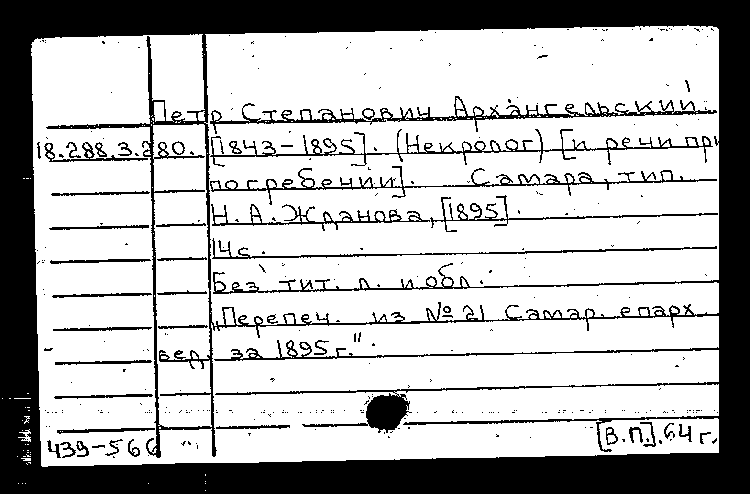 Петр Степанович Архангельский.
18.288.3.280. [1843-1895]. (Некролог) [и речи при
погребении]. Самара, тип.
Н. А. Жданова, [1895].
14 с.
Без тит. л. и обл.
„Перепеч. из № 21 Самар. епарх.
вед. за 1895 г.".
439-566 [В.П.]. 64 г.